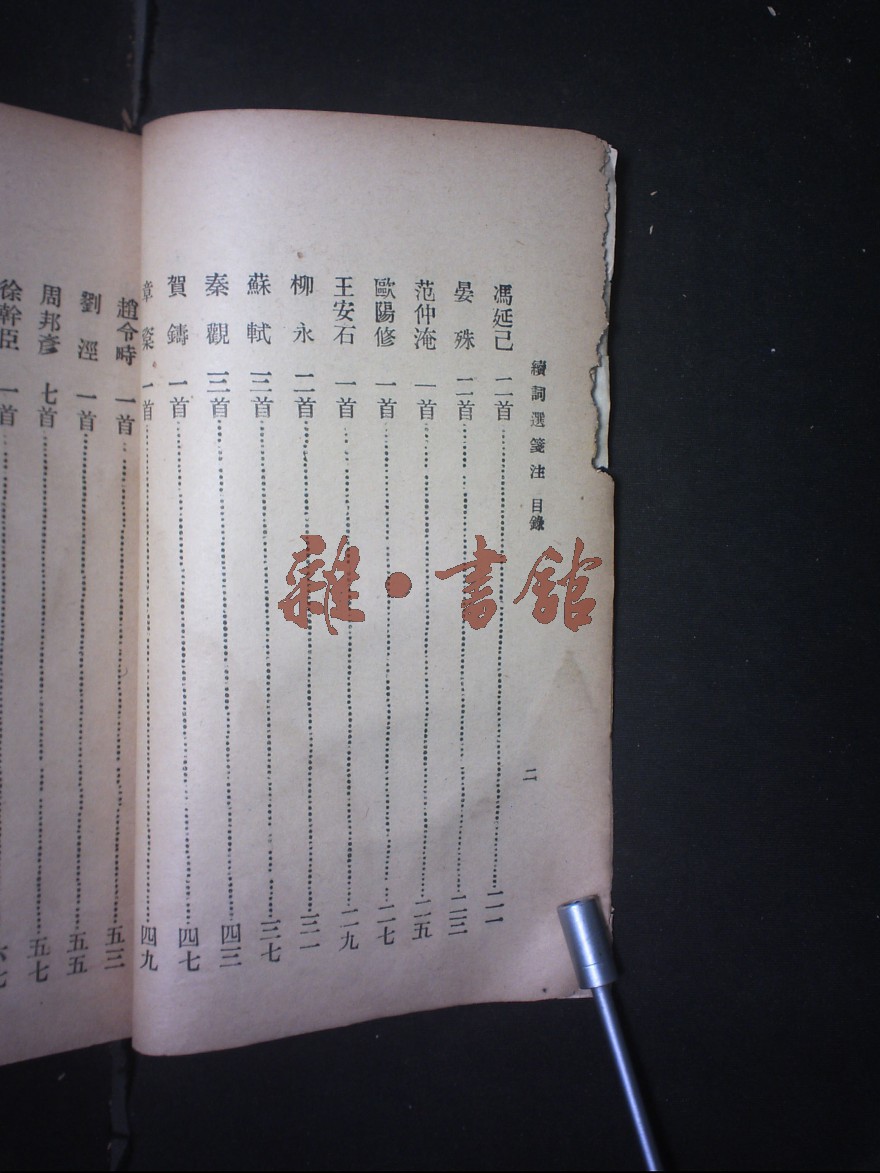 續詞選箋注 目錄
二
馮延己 二首 二一
晏殊 二首 二三
范仲淹 一首 二五
歐陽修 一首 二七
王安石 一首 二九
柳永 二首 三一
蘇軾 三首 三七
秦觀 三首 四三
賀鑄 一首 四七
章楶 一首 四九
趙令畤 一首 五三
劉涇 一首 五五
周邦彥 七首 五七
徐幹臣 一首 六七
雜·書館